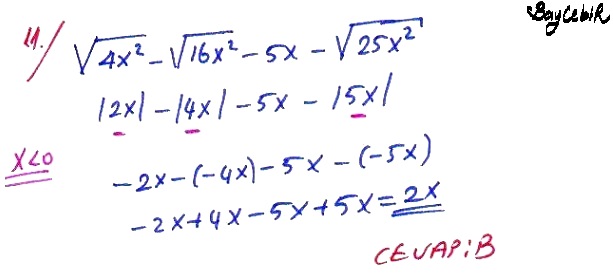 BayCebiR
11./ √4x² - √16x² - 5x - √25x²
|2x| - |4x| - 5x - |5x|
x<0
-2x-(-4x)-5x-(-5x)
-2x+4x-5x+5x=2x
CEVAP:B